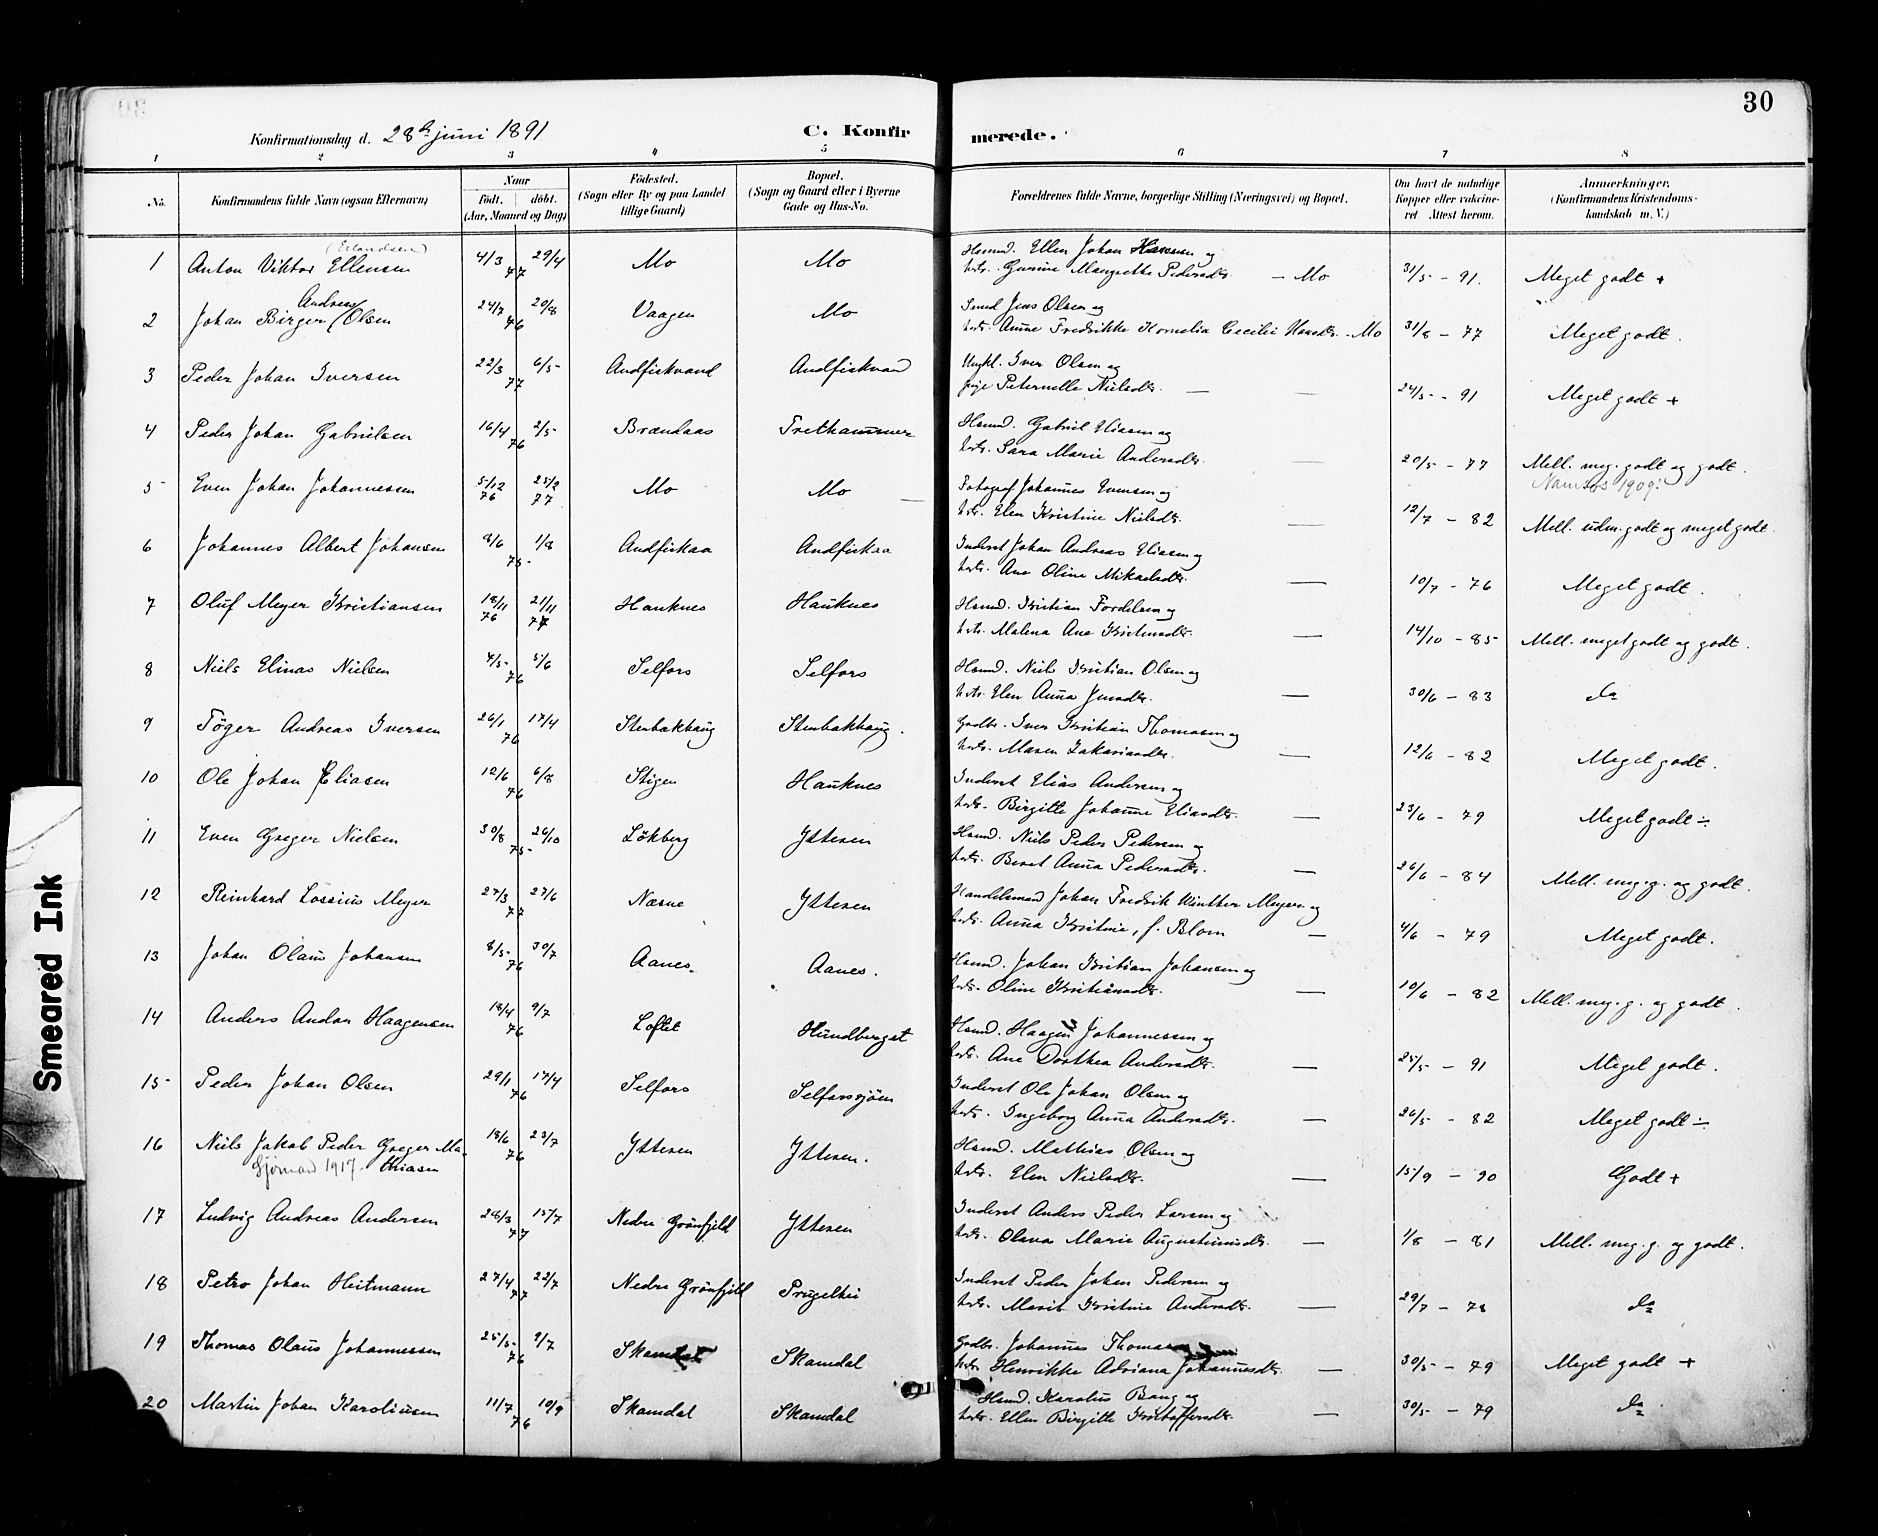 30
Konfirmationsdag d. 28de juni 1891
C. Konfirmerede.
1 2 3 4 5 6 7 8
No.
Konfirmandens fulde Navn (ogsaa Efternavn)
Naar
Født. døbt.
(Aar, Maaned og Dag)
Födested.
(Sogn eller By og paa Landet
tillige Gaard)
Bopæl.
(Sogn og Gaard eller i Byerne
Gade og Hus-No.
Forældrenes fulde Navne, borgerlige Stilling (Næringsvei) og Bopæl.
Om havt de naturlige
Kopper eller vakcine-
ret. Attest herom.
Anmærkninger.
(Konfirmandens Kristendoms-
kundskab m. V.)
(Erlandsen)
1 Anton Viktor Ellensen 4/3 77 29/4 Mo Mo
Husmd. Ellen Johan Hansen og
hstr. Gurine Margrethe Pedersdtr. — Mo 31/5 - 91. Meget godt +
Andreas
2 Johan Birger (Olsen 24/7 76 20/8 Vaagen Mo
Smed Jens Olsen og
hstr. Anne Fredrikke Kornelia Cecilie Hansdtr. - Mo 31/8 - 77 Meget godt.
3 Peder Johan Iversen 22/3 77 6/5 Andfiskvand Andfiskvand
Ungkl. Iver Olsen og
pige Peternelle Nielsdtr. — — 24/5 - 91 Meget godt +
4 Peder Johan Gabrielsen 16/4 76 2/5 Brændaas Trethammer
Husmd. Gabriel Eliasen og
hstr. Sara Marie Andersdtr. — 20/5 - 77 Mell. meg. godt og godt.
Namsos 1909.
5 Even Johan Johannessen 5/12 76 25/2 77 Mo Mo —
Fotograf Johannes Evensen og
hstr. Elen Kristine Nielsdtr. — 12/7 - 82 Mell. udm. godt og meget godt.
6 Johannes Albert Johansen 8/6 75 1/8 Andfiskaa Andfiskaa
Inderst Johan Andreas Eliasen og
hstr. Ane Oline Mikaelsdtr. — 10/7 - 76 Meget godt.
7 Oluf Meyer Kristiansen 18/11 76 21/11 77 Hauknes Hauknes
Husmd. Kristian Fordelsen og
hstr. Malena Ane Kristensdtr. — 14/10 - 85 Mell. meget godt og godt.
8 Niels Elinas Nielsen 4/5 76 5/6 Selfors Selfors
Husmd. Niels Kristian Olsen og
hstr. Elen Anna Jensdtr. — 30/6 - 83 do
9 Töger Andreas Iversen 26/1 76 17/4 Stenbakhaug Stenbakhaug.
Gadbr. Iver Kristian Thomassen og
hstr. Maren Zakariasdtr. — 12/6 - 82 Meget godt.
10 Ole Johan Eliasen 12/6 76 6/8 Stigen Hauknes
Inderst Elias Andersen og
hstr. Birgitte Johanne Eliasdtr. — 23/6 - 79 Meget godt ÷
11 Even Greger Nielsen 30/8 75 26/10 Lökberg Ytteren
Husmd. Niels Peder Pedersen og
hstr. Beret Anna Pedersdtr. — 26/6 - 84 Mell. meg. g. og godt.
12 Reinhard Lossius Meyer 27/3 77 27/6 Næsne Ytteren
Handelsmand Johan Fredrik Winther Meyer og
hstr. Anna Kristine, f. Blom — 4/6 - 79 Meget godt.
13 Johan Olaus Johansen 8/5 76 30/7 Aanes. Aanes.
Husmd. Johan Kristian Johansen og
hstr. Oline Kristiansdtr. — 10/6 - 82 Mell. meg. g. og godt.
14 Anders Andor Haagensen 18/4 76 9/7 Loftet Hundberget
Husmd. Haagen Johannessen og
hstr. Ane Dorthea Andersdtr. — 25/5 - 91 Meget godt.
15 Peder Johan Olsen 29/1 76 17/4 Selfors Selforssjöen
Inderst Ole Johan Olsen og
hstr. Ingeborg Anna Andersdtr. — 26/5 - 82 Meget godt ÷
16 Niels Jakob Peder Greger Ma- 18/6 76 23/7 Ytteren Ytteren.
Sjömand 1917. thiasen
Husmd. Mathias Olsen og
hstr. Elen Nielsdtr. — 15/9 - 90 Godt +
17 Ludvig Andreas Andersen 28/3 77 15/7 Nedre Grönfjeld Ytteren
Inderst Anders Peder Larsen og
hstr. Olava Marie Augustinusdtr. — 1/8 - 81 Mell. meg. g. og godt.
18 Petro Johan Heitmann 27/4 77 22/7 Nedre Grönfjeld Prugelhei
Inderst Peder Johan Pedersen og
hstr. Marit Kristine Andersdtr. — 29/7 - 78 do
19 Thomas Olaus Johannessen 25/5 76 9/7 Skamdal Skamdal
Gadbr. Johannes Thomassen
hstr. Henrikke Adriana Johannesdtr. — 30/5 - 79 Meget godt +
20 Martin Johan Karoliusen 11/7 76 10/9 Skamdal Skamdal
Husmd. Karolius Bang og
hstr. Ellen Birgitte Kristoffersdtr. — 30/5 - 79 do
Smeared Ink